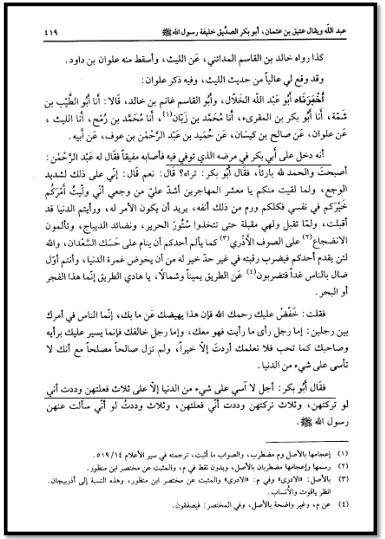 عبد الله ويقال عتيق بن عثمان، أبو بكر الصدّيق خليفة رسول الله ﷺ ٤١٩
كذا رواه خالد بن القاسم المدائني، عَن الليث، وأسقط منه علوان بن داود.
وقد وقع لي عالياً من حديث الليث، وفيه ذكر علوان:
أخبرناه أبو عبد الله الخَلّال، وأبو القاسم غانم بن خالد، قالا: أنا أبو الطَّيِّب بن
شَمّة، أنا أبو بكر بن المقرىء، أنا مُحمَّد بن زَبّان(١)، أنا مُحمَّد بن رُمْح، أنا الليث،
عَن علوان، عَن صالح بن كيسان، عَن حُميد بن عَبْد الرَّحْمٰن بن عوف، عَن أبيه.
أنه دخل على أبي بكر في مرضه الذي توفي فيه فأصابه مفيقاً فقال له عَبْد الرَّحْمٰن:
أصبحتَ والحمد لله بارئاً، فقال أبُو بكر: تراه؟ قال: نعم قال: إنّي على ذلك لشديد
الوجع، ولما لقيت منكم يا معشر المهاجرين أشدّ عليّ من وجعي أنّي ولّيتُ أَمْرَكُم
خَيْرَكم في نفسي فكلكم ورم من ذلك أنفه، يريد أن يكون الأمر له، ورأيتم الدنيا قد
أقبلت، ولمّا تقبل ولهي مقبلة حتى تتخذوا سُتُورَ الحرير، ونضائد الديباج، وتألمون
الانضجاع(٢) على الصوف الأذَري(٣) كما يألم أحدكم أن ينام على حَسَك السَّعْدان، والله
لئن يقدم أحدكم فيضرب رقبته في غير حدّ خير له من أن يخوض غمرة الدنيا، وأنتم أوّل
ضال بالناس غداً فتضربون(٤) عَن الطريق يميناً وشمالاً، يا هادي الطريق إنّما هذا الفجر
أو البحر.
فقلت: خَفِّضْ عليك رحمك الله فإن هذا يهيضك عَن ما بك، إنّما الناس في أمرك
بين رجلين: إما رجل رأى ما رأيت فهو معك، وإما رجل خالفك فإنما يسير عليك برأيه
وصاحبك كما تحب فلا نعلمك أردتَ إلّا خيراً، ولم نزل صالحاً مصلحاً مع أنك لا
تأسى على شيء من الدنيا.
فقال أبُو بكر: أجل لا آسى على شيء من الدنيا إلّا على ثلاث فعلتهن وددت أني
لو تركتهن، وثلاث تركتهن وددت أنّي فعلتهن، وثلاث وددتُ لو أنّي سألت عنهن
رسول الله ﷺ.
(١) إعجامها بالأصل وم مضطرب، والصواب ما أثبت، ترجمته في سير الأعلام ١٤/ ٥١٩.
(٢) رسمها وإعجامها مضطربان بالأصل، وبدون نقط في م، والمثبت عن مختصر ابن منظور.
(٣) بالأصل: «الادرى» وفي م: «الادرى» والمثبت عن مختصر ابن منظور، وهذه النسبة إلى أذربيجان.
انظر ياقوت والأنساب.
(٤) عن م، وغير واضحة بالأصل، وفي المختصر: فيصفقون.